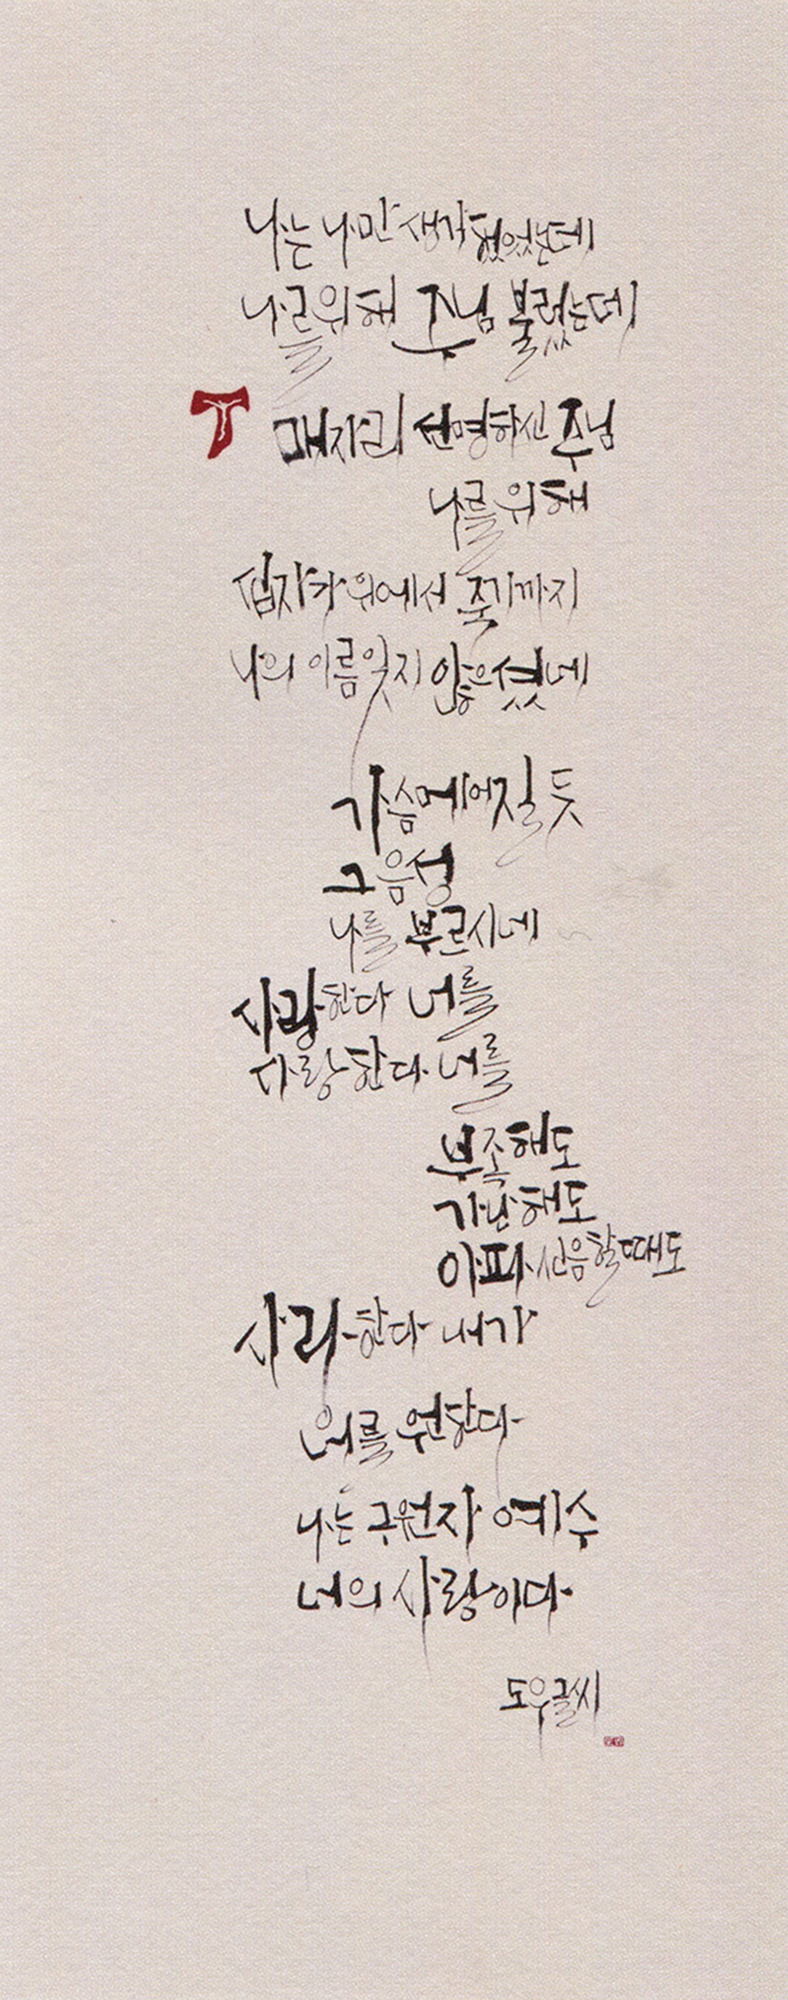 나는 나만 생각했었는데
나를위해 주님 불렀는데
매자리 선명하신 주님
나를위해
십자가위에서 죽기까지
나의 이름잊지 않으셨네
가슴메어질듯
그음성
나를 부르시네
사랑한다 너를
사랑한다 너를
부족해도
가난해도
아파 신음할때도
사랑한다 내가
너를 원한다
나는 구원자 예수
너의 사랑이다
도우글씨